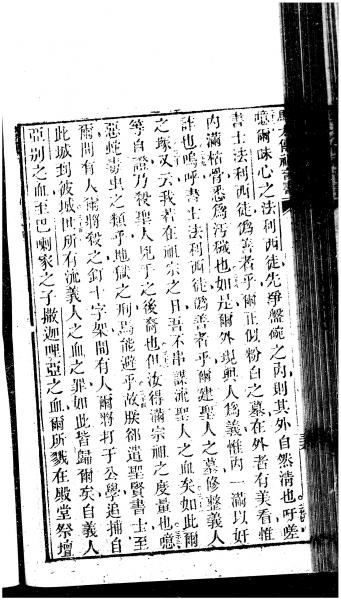 噫爾昧心之法利西徒先淨盤碗之內則其外自然清也呼嗟
書士法利西徒偽善者乎爾正似粉白之墓在外者有美看惟
內滿枯骨悉為污穢也如是爾外現與人為義惟內一滿以奸
詐也嗚呼書士法利西徒偽善者乎爾建聖人之墓修整義人
之塚又云我若在祖宗之日吾不串謀流聖人之血矣如此爾
等自證乃殺聖人兇手之後裔也但汝得滿宗祖之度量也噫
惡蛇毒虫之類乎地獄之刑焉能避乎故朕卻遣聖賢書士至
爾間有人爾將殺之釘十字架間有人爾將打于公學追捕自
此城到彼城世所有流義人之血之罪如此皆歸爾矣自義人
亞別之血至巴喇家之子撒迦哩亞之血爾所戮在殿堂祭壇